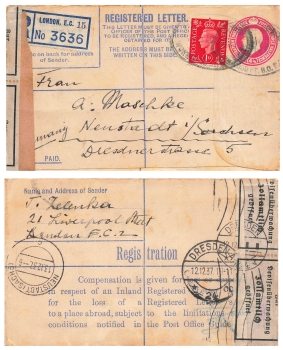 REGISTERED LETTER.
LONDON, E.C. 15
No 3636
THIS LETTER MUST BE GIVEN TO AN
OFFICER OF THE POST OFFICE
TO BE REGISTERED, AND A RECEIPT
OBTAINED FOR IT.
THE ADDRESS MUST BE
WRITTEN ON THIS SIDE.
on back for address
of Sender.
Frau
A. Maschke
Neustadt i/Sachsen
Germany
Dresdnerstrasse 5
PAID.
Name and Address of Sender
F. Zelenka
21 Liverpool Street
London E.C.2
Registration
DRESDEN
12.12.37
Compensation is given for
in respect of an Inland Registered
for the loss of a Registered
to a place abroad, subject to the limitations
conditions notified in the Post Office Guide
Devisenüberwachung
Zollamtlich
geöffnet
Devisenüberwachung
Zollamtlich
geöffnet